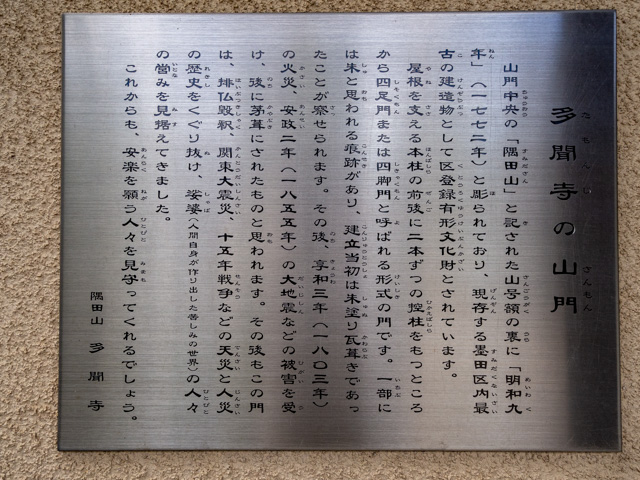 多聞寺の山門
山門中央の「隅田山」と記された山号額の裏に「明和九
年」（一七七二年）と彫られており、現存する墨田区内最
古の建造物として区登録有形文化財とされています。
屋根を支える本柱の前後に二本ずつの控柱をもつところ
から四足門または四脚門と呼ばれる形式の門です。一部に
は朱と思われる痕跡があり、建立当初は朱塗り瓦葺きであっ
たことが察せられます。その後、享和三年（一八〇三年）
の火災、安政二年（一八五五年）の大地震などの被害を受
け、後に茅葺にされたものと思われます。その後もこの門
は、排仏毀釈、関東大震災、十五年戦争などの天災と人災
の歴史をくぐり抜け、娑婆（人間自身が作り出した苦しみの世界）の人々
の営みを見据えてきました。
これからも、安楽を願う人々を見守ってくれるでしょう。
隅田山 多聞寺